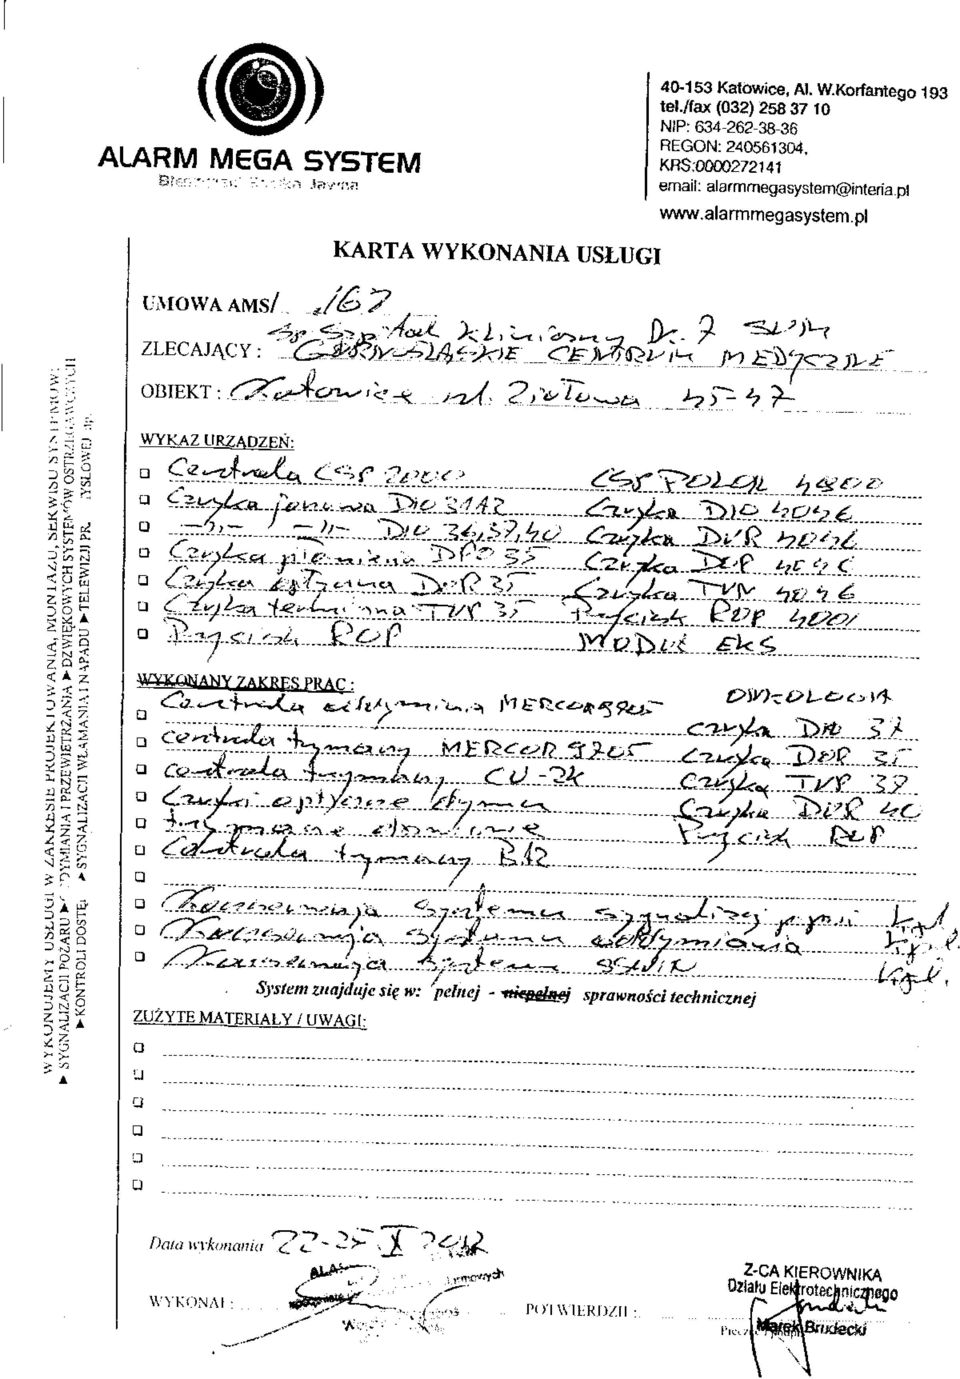 ALARM MEGA SYSTEM
40-153 Katowice, Al. W.Korfantego 193
tel./fax (032) 258 37 10
NIP: 634-262-38-36
REGON: 240561304,
KRS:0000272141
email: alarmmegasystem@interia.pl
www.alarmmegasystem.pl
KARTA WYKONANIA USŁUGI
UMOWA AMS/ 167
Sp Szpital Kliniczny Nr. 7 SUM
ZLECAJĄCY : GÓRNOŚLĄSKIE CENTRUM MEDYCZNE
OBIEKT : Katowice ul. Ziołowa 45-47
WYKAZ URZĄDZEŃ:
Centrala CSP 2000 CSP POLON 4800
Czujka jonowa DIO 31A2 Czujka DIO 4046
—11— —11— DIO 36,37,40 Czujka DUR 4046
Czujka płomienia DPO 35 Czujka DOP 40
Czujka optyczna DOR 35 Czujka TUN 4046
Czujka termiczna TUP 35 Przycisk ROP 4001
Przycisk ROP MODUŁ EKS
WYKONANY ZAKRES PRAC :
Centrala oddymiania MERCOR 9705 ONKOLOGIA
centrala trzymaczy MERCOR 9705 czujka DIO 37
centrala trzymaczy CU-2K Czujka DOR 35
Czujki optyczne dymu Czujka TUP 37
trzymacze drzwiowe Czujka DUR 40
Centrala trzymaczy B12 Przycisk ROP
Konserwacja systemu sygnalizacji ppoż
Konserwacja systemu oddymiania
Konserwacja systemu SSWIN
System znajduje się w: pełnej - niepełnej sprawności technicznej
ZUŻYTE MATERIAŁY / UWAGI:
Data wykonania 22-25 X 2012
WYKONAŁ :
POTWIERDZIŁ :
Z-CA KIEROWNIKA
Działu Elektrotechnicznego
Marek Brudecki
WYKONUJEMY USŁUGI W ZAKRESIE PROJEKTOWANIA, MONTAŻU, SERWISU SYSTEMÓW:
► SYGNALIZACJI POŻARU ► ODDYMIANIA I PRZEWIETRZANIA ► DŹWIĘKOWYCH SYSTEMÓW OSTRZEGAWCZYCH
► KONTROLI DOSTĘ ► SYGNALIZACJI WŁAMANIA I NAPADU ► TELEWIZJI PR